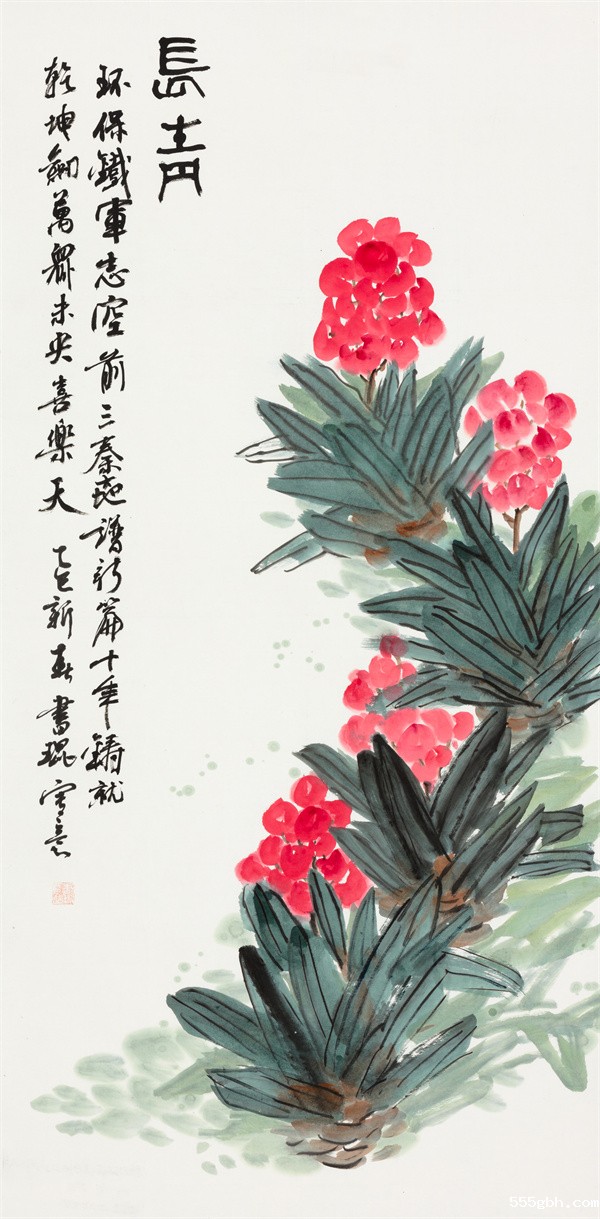 長青
环保鐵軍志空前三秦大地譜新篇十年鑄就
乾坤劍萬眾未央喜樂天 乙巳新春書琨寫意
555gbh.com